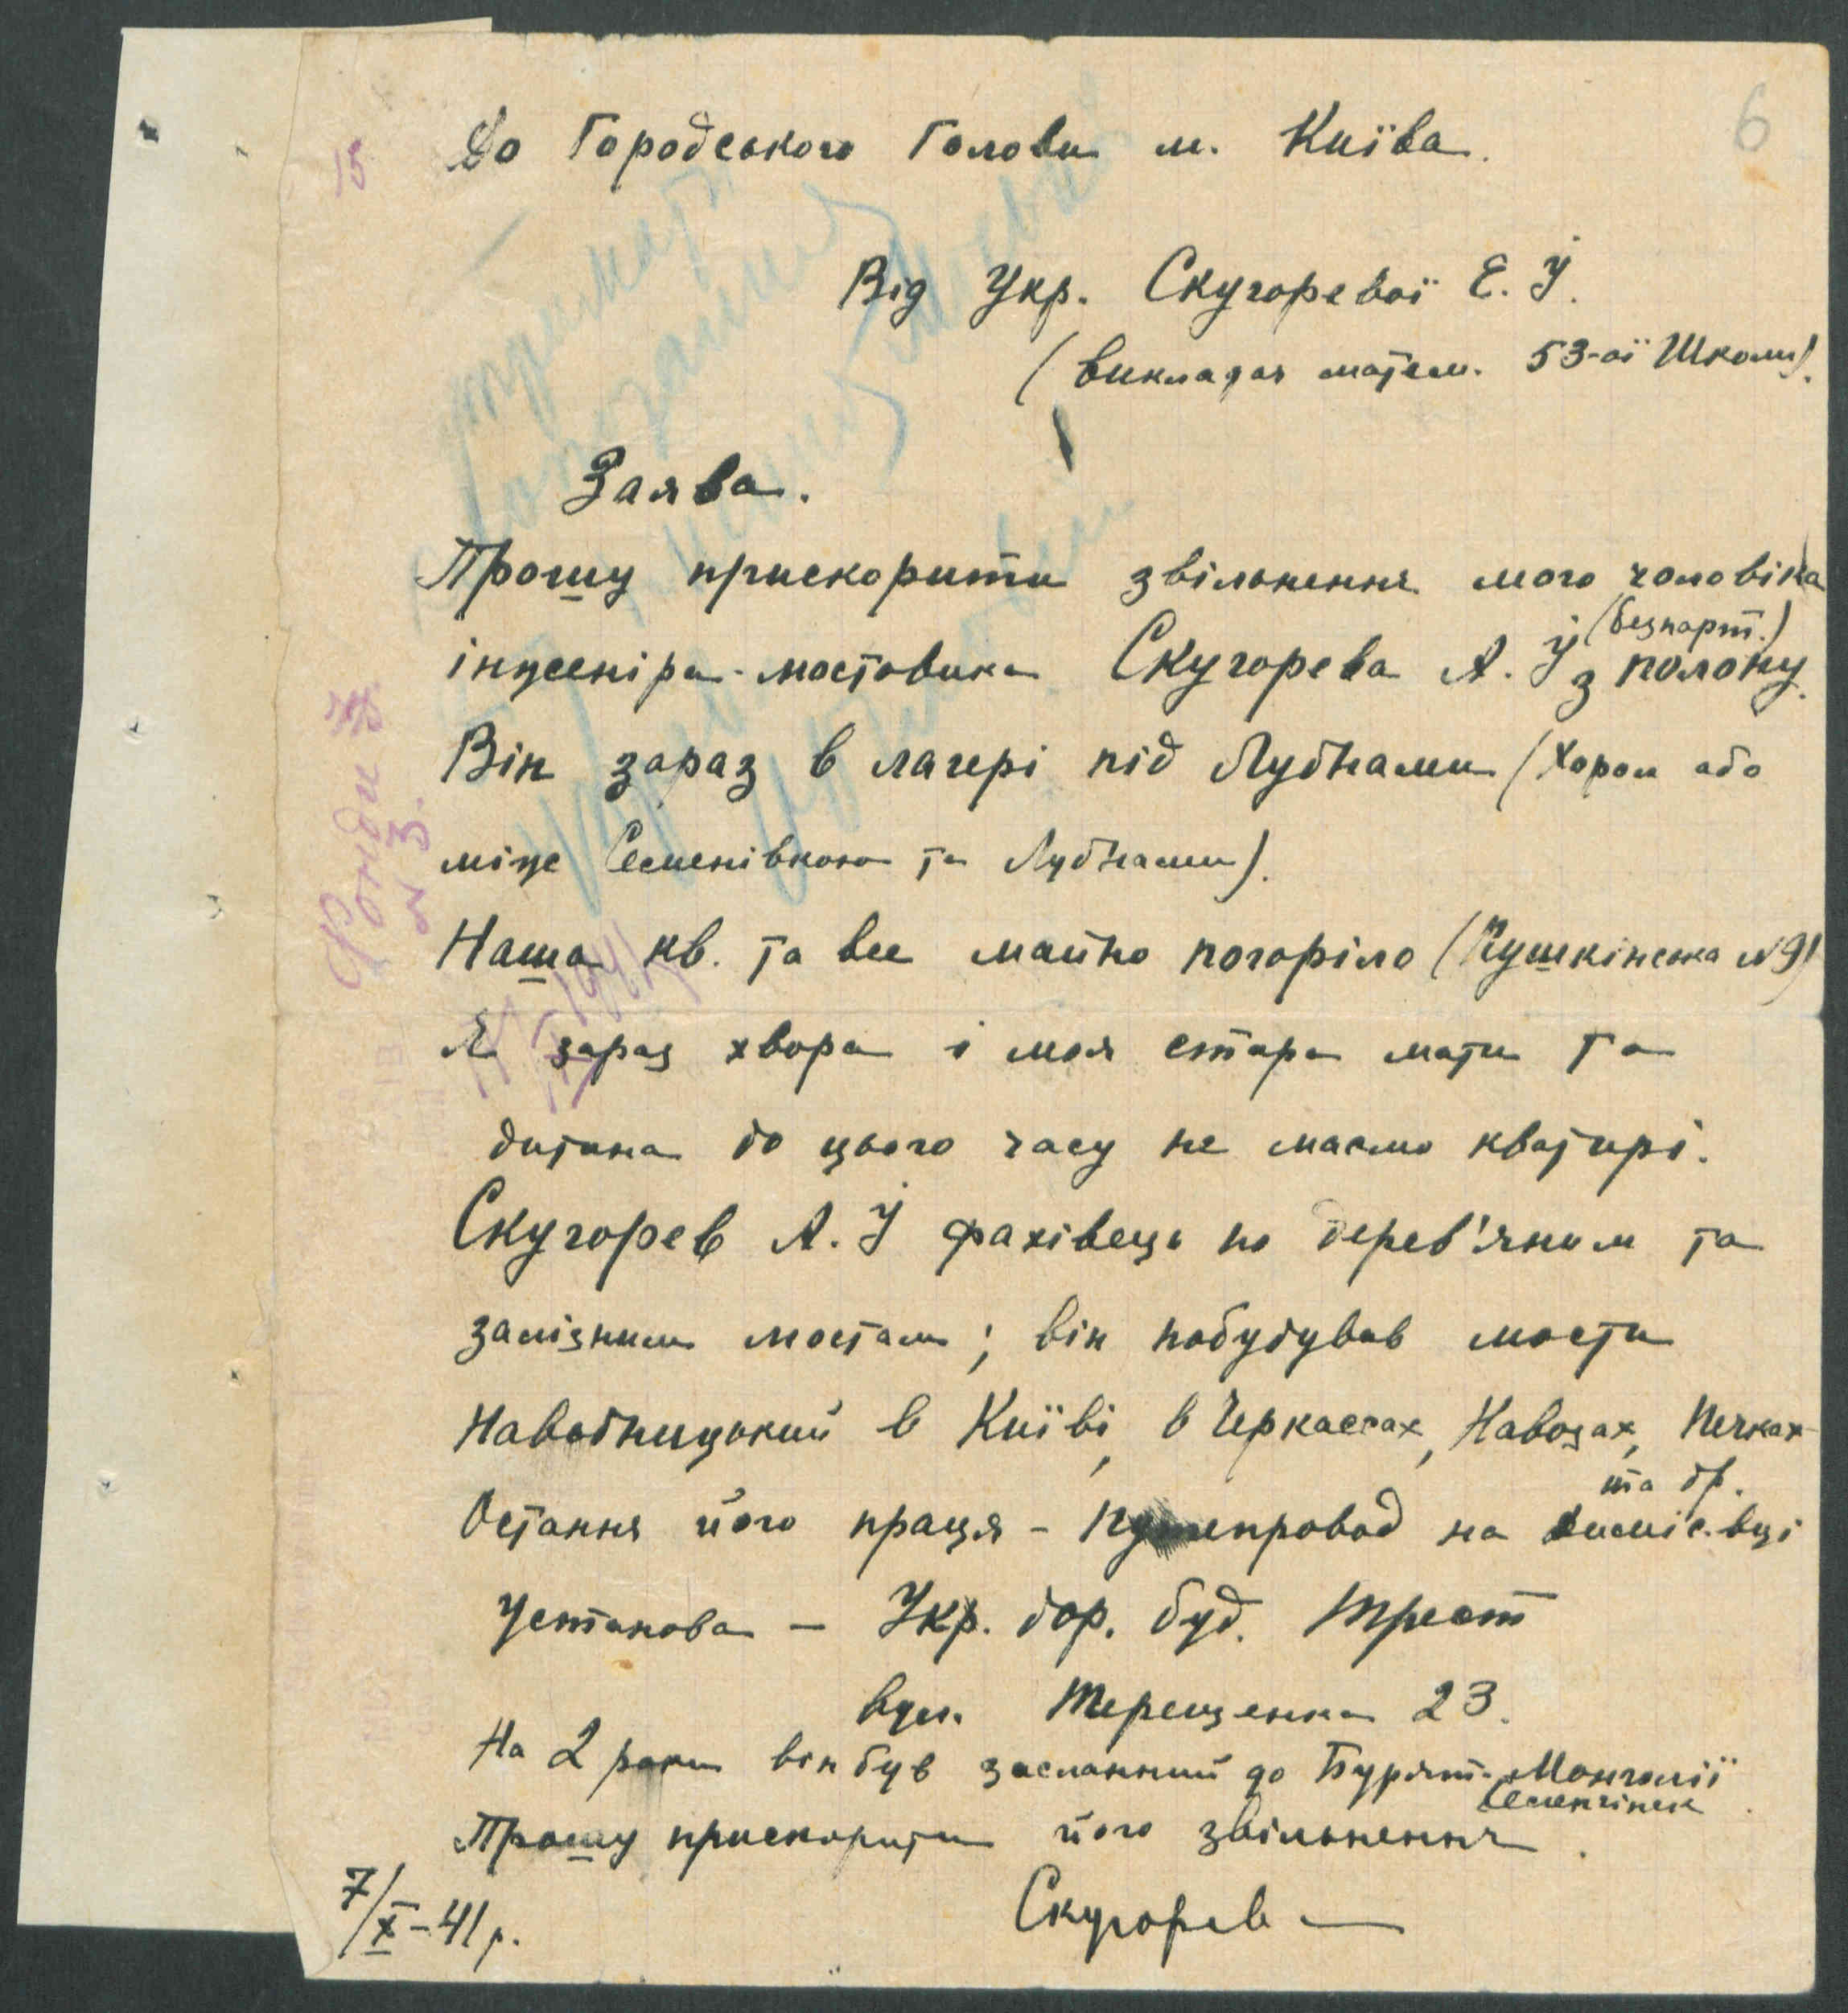 6
15
До Городського Голови м. Київа.
Від Укр. Скугоревої Е. И.
(викладач матем. 53-ої Школи).
Заява.
Прошу прискорити звільнення мого чоловіка
(безпарт.)
інженіра-мостовика Скугорева А. И з полону.
Він зараз в лагері під Лубнами (Хорол або
міже Семенівкою та Лубнами).
Наша кв. та все майно погоріло (Пушкінська №9)
Я зараз хвора і моя стара мати та
дитина до цього часу не маємо кватирі.
Скугорев А. И фахівець по дерев'яним та
залізним мостам; він побудував мости
Наводницький в Київі, в Черкассах, Навозах, Печках
та др.
Остання його праця - путепровод на
Установа — Укр. дор. буд. трест
вул. Терещенка 23.
На 2 роки він був засланний до Бурят. Монголії
Прошу прискорити його звільнення.
7/X-41 р.
Скугорев